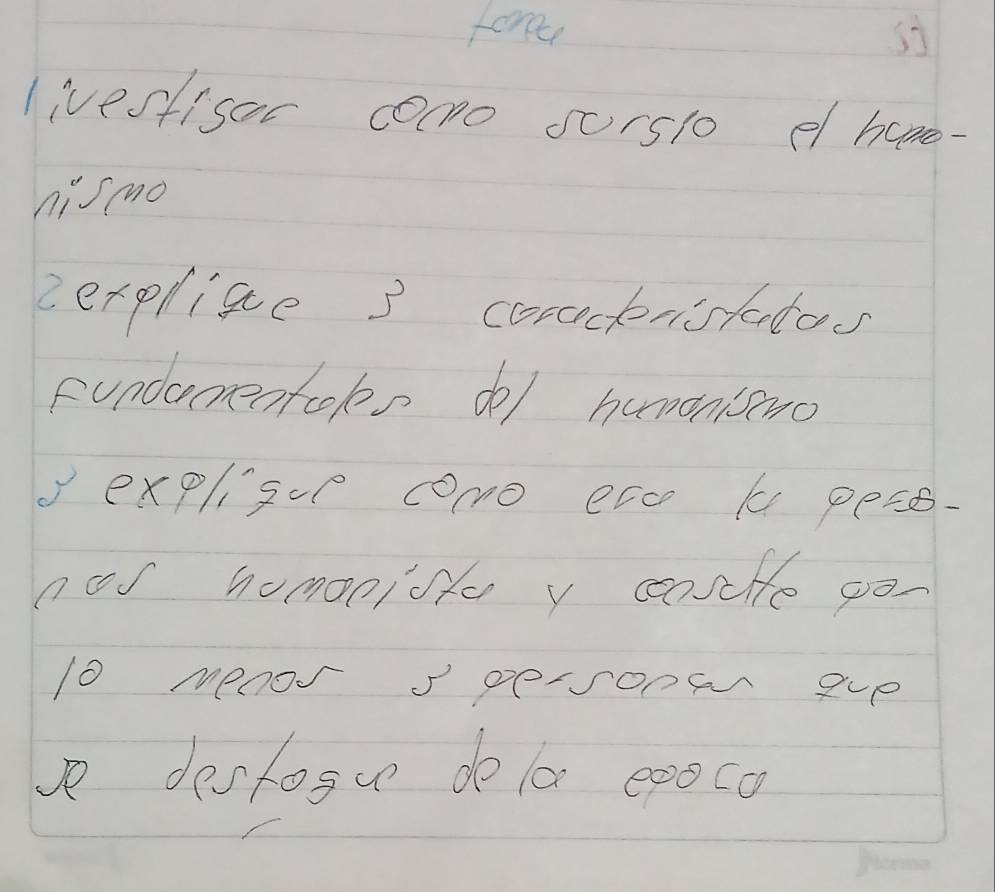 1 ivestigar como surgio el humo-
nismo
2 explique 3 caracteristatas
Fundamentales del humanismo
3 explique como era la perso-
nas humanista y consulte por
lo menos 3 personas que
se destogue de la epoca
Norma